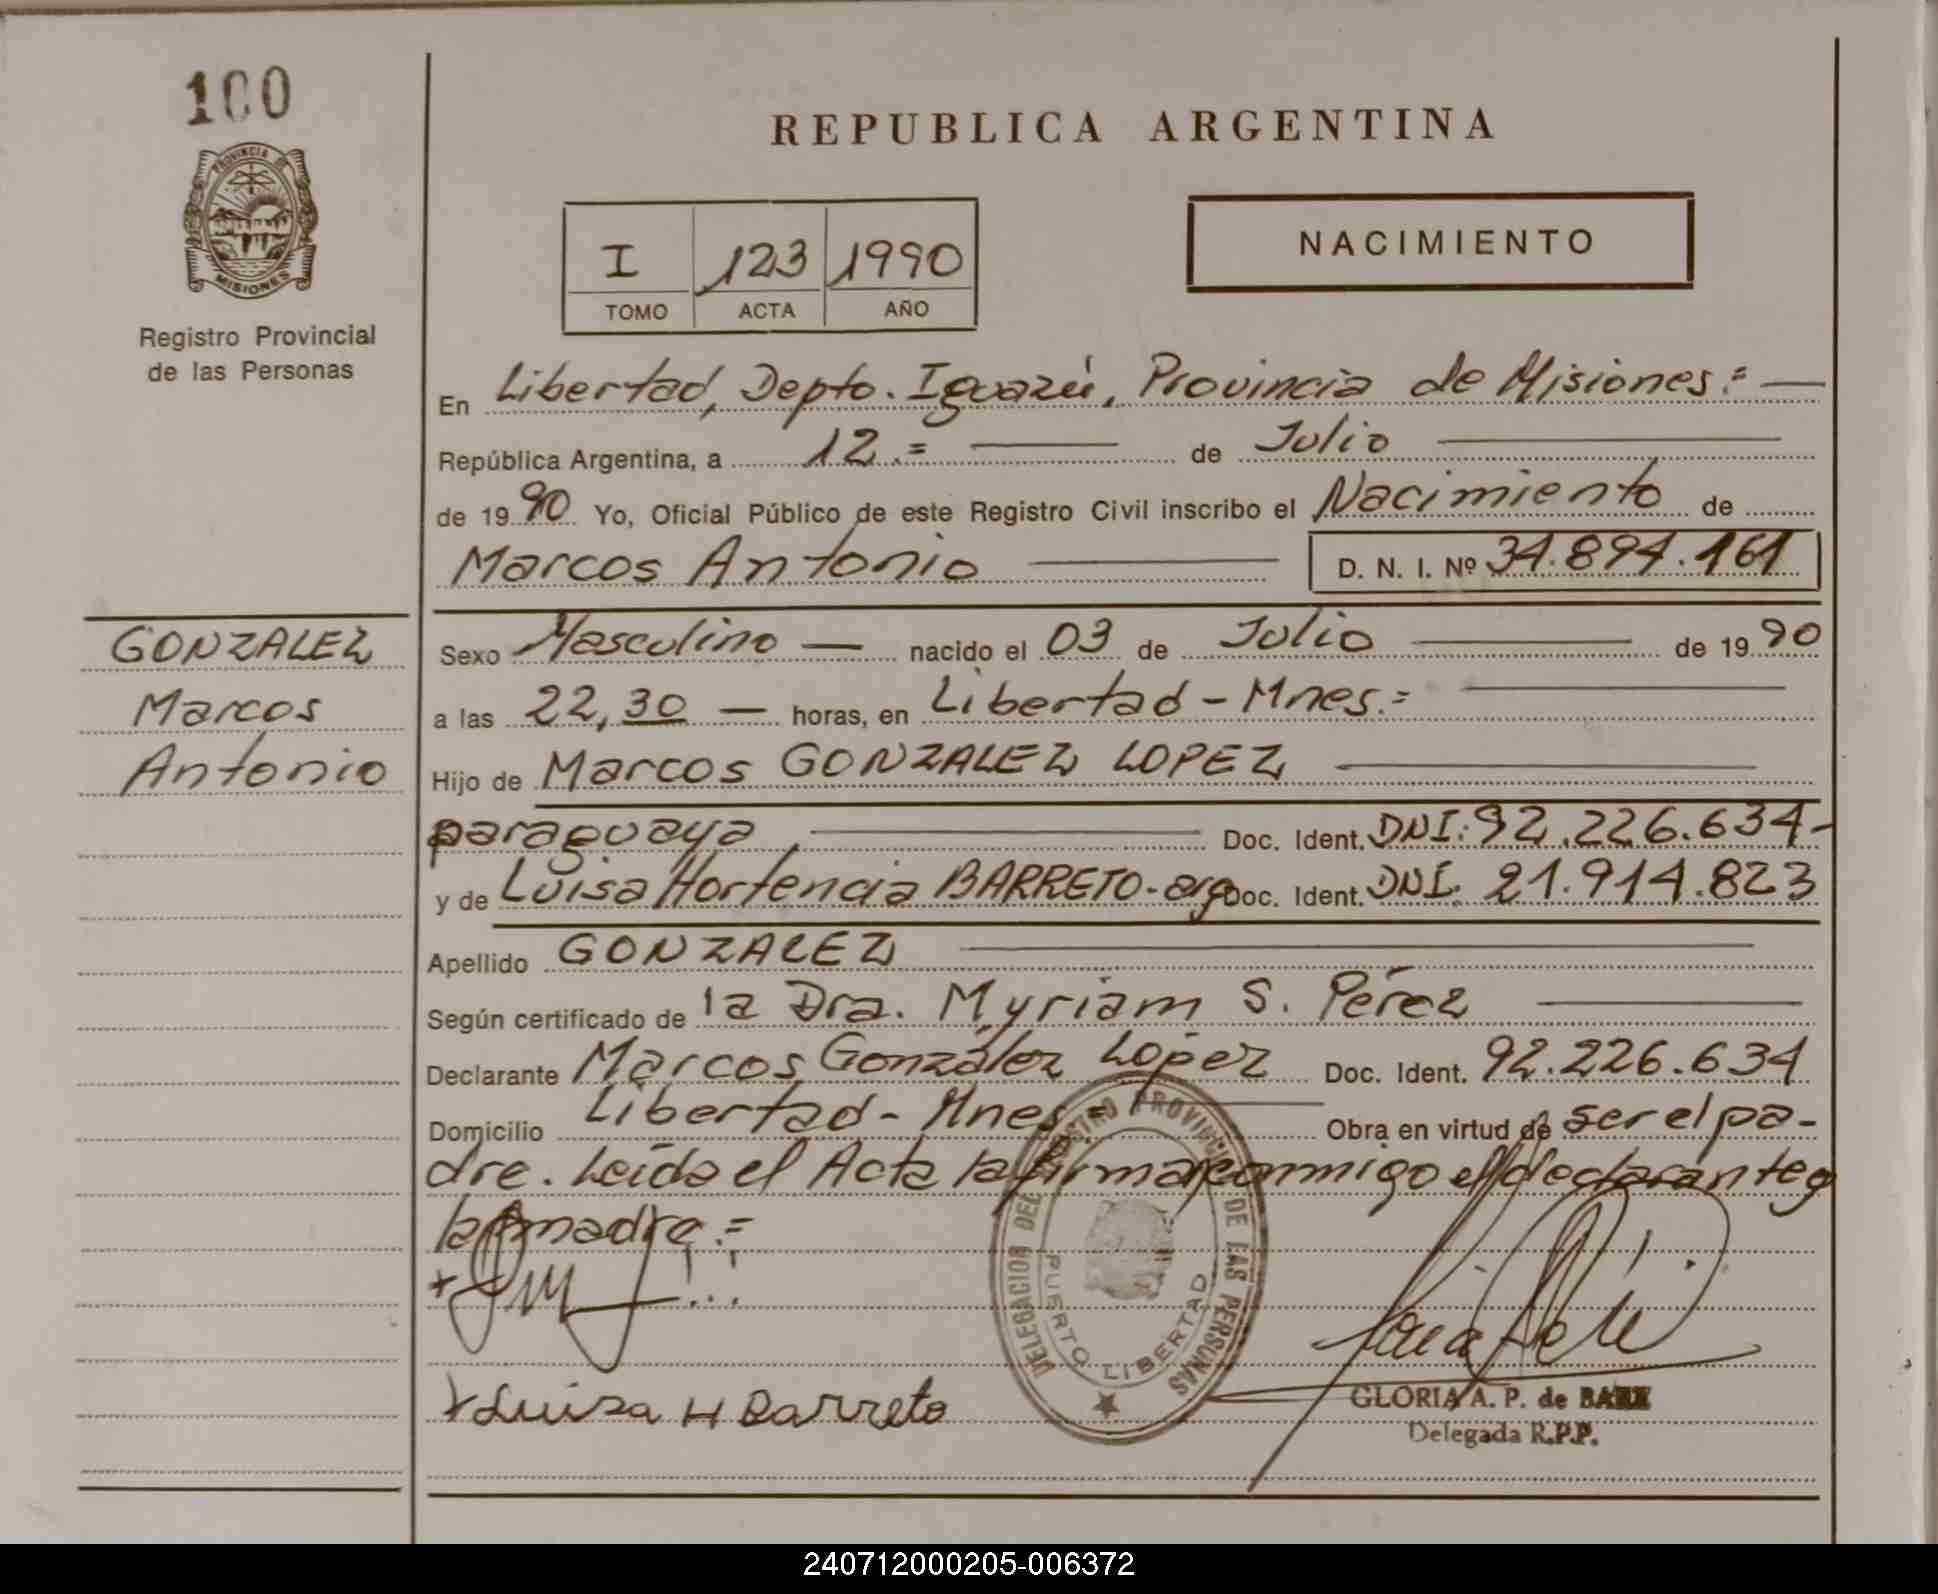 100
PROVINCIA DE
MISIONES
Registro Provincial
de las Personas
GONZALEZ
Marcos
Antonio
REPUBLICA ARGENTINA
I 123 1990
TOMO ACTA AÑO
NACIMIENTO
En Libertad, Depto. Iguazú, Provincia de Misiones.=
República Argentina, a 12.= de Julio
de 1990 Yo, Oficial Público de este Registro Civil inscribo el Nacimiento de
Marcos Antonio D. N. I. Nº 34.894.161
Sexo Masculino nacido el 03 de Julio de 1990
a las 22,30 horas, en Libertad - Mnes.=
Hijo de Marcos GONZALEZ LOPEZ
paraguaya Doc. Ident. DNI: 92.226.634-
y de Luisa Hortencia BARRETO - arg Doc. Ident. DNI. 21.914.823
Apellido GONZALEZ
Según certificado de la Dra. Myriam S. Pérez
Declarante Marcos González López Doc. Ident. 92.226.634
Domicilio Libertad - Mnes.= Obra en virtud de ser el pa-
dre. Leída el Acta la firma conmigo el declarante y
la madre.=
DELEGACION DEL REGISTRO PROVINCIAL DE LAS PERSONAS
PUERTO LIBERTAD
+ Luisa H Barreto
GLORIA A. P. de
Delegada R.P.P.
240712000205-006372